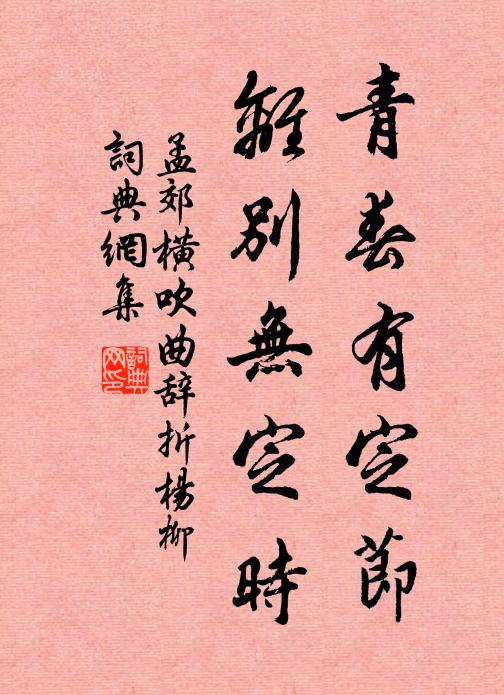 青春有定節
離別無定時
孟郊橫吹曲辞折楊柳
詞典網集
詞典网印